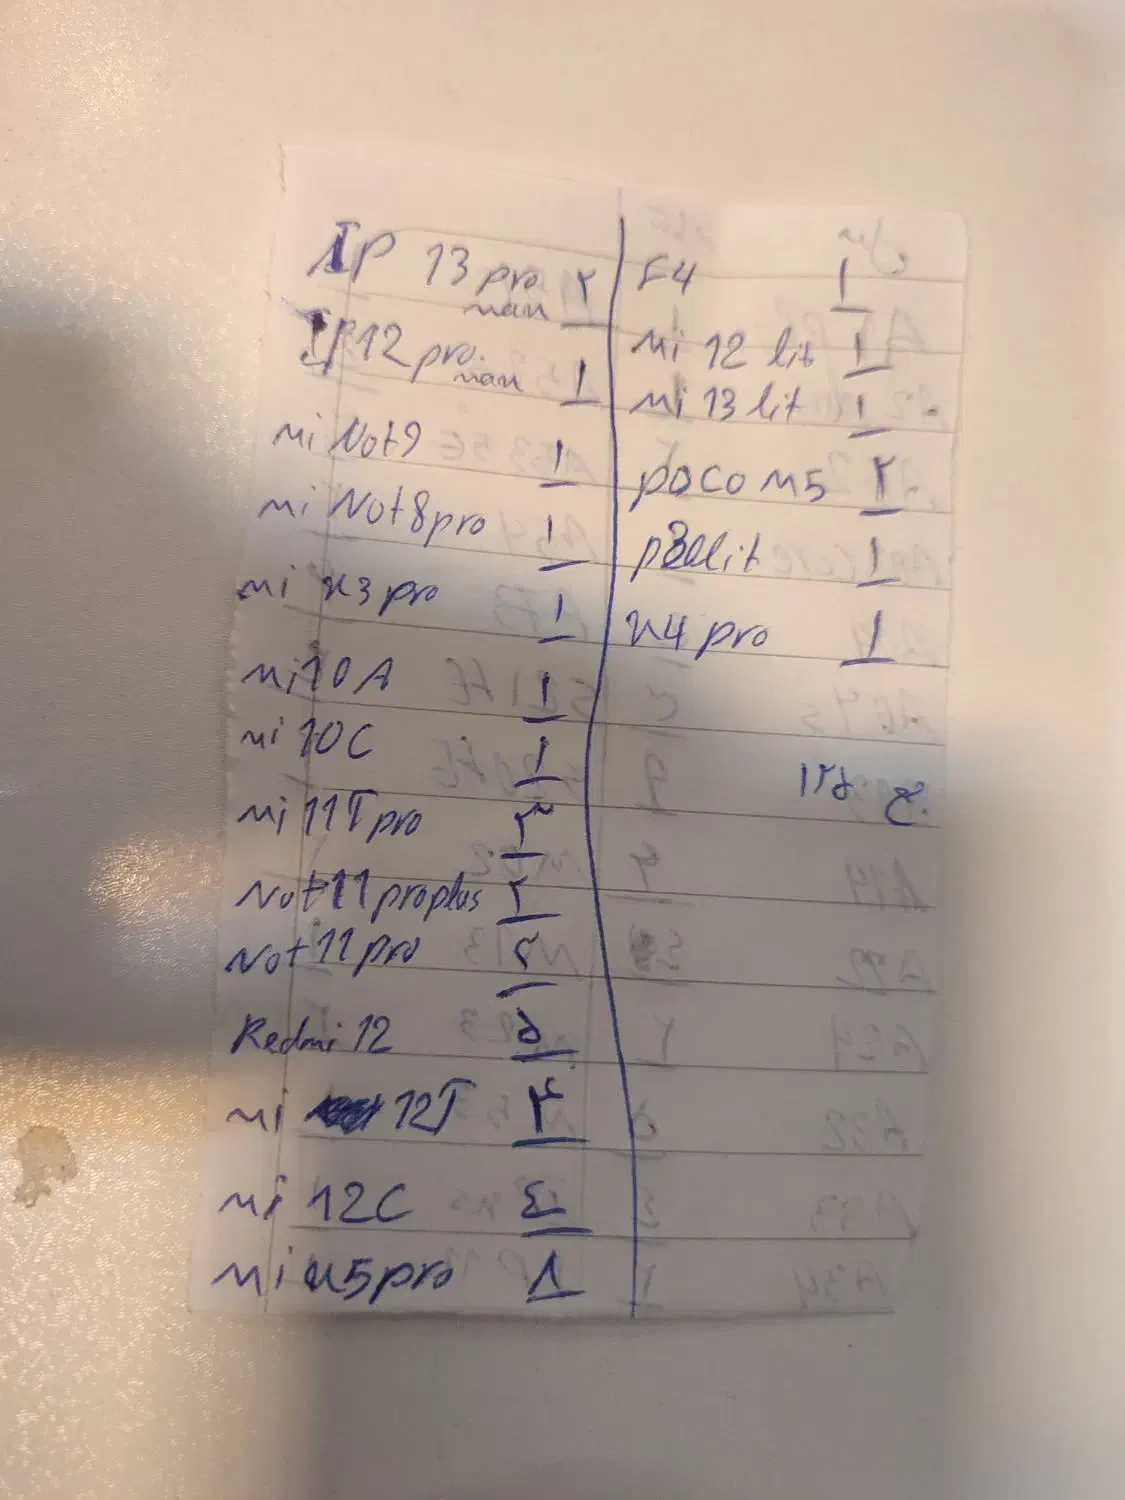 IP 13 pro ٢
max
IP 12 pro ١
max
mi Not9 ١
mi Not8pro ١
mi x3 pro ١
mi 10A ١
mi 10C ١
mi 11T pro ٣
Not 11 pro plus ٢
Not 11 pro
Redmi 12 ٥
mi 12T ٣
mi 12C ٤
mi x5 pro ١
F4 ١
mi 12 lit ١
mi 13 lit ١
poco M5 ٢
lit ١
x4 pro ١